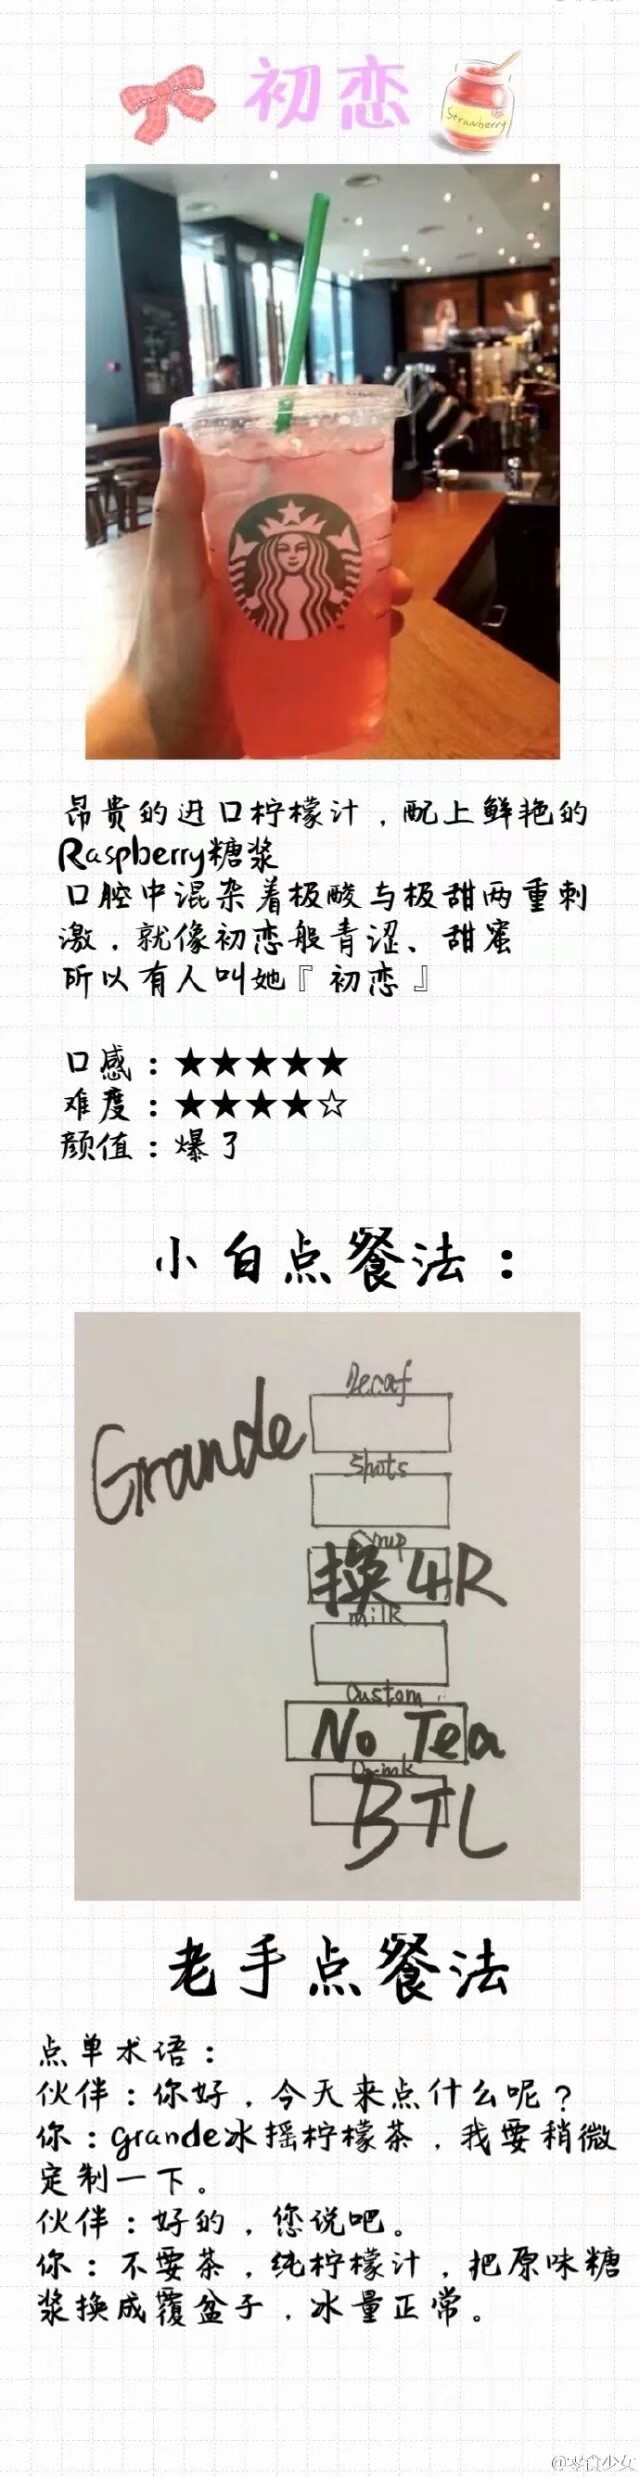 初恋
Strawberry
昂贵的进口柠檬汁，配上鲜艳的
Raspberry糖浆
口腔中混杂着极酸与极甜两重刺
激，就像初恋般青涩、甜蜜
所以有人叫她『初恋』
口感：★★★★★
难度：★★★★☆
颜值：爆了
小白点餐法：
Grande
Decaf
Shots
换4R
milk
Custom
No Tea
Drink
BTL
老手点餐法
点单术语：
伙伴：你好，今天来点什么呢？
你：grande冰摇柠檬茶，我要稍微
定制一下。
伙伴：好的，您说吧。
你：不要茶，纯柠檬汁，把原味糖
浆换成覆盆子，冰量正常。
@零食少女